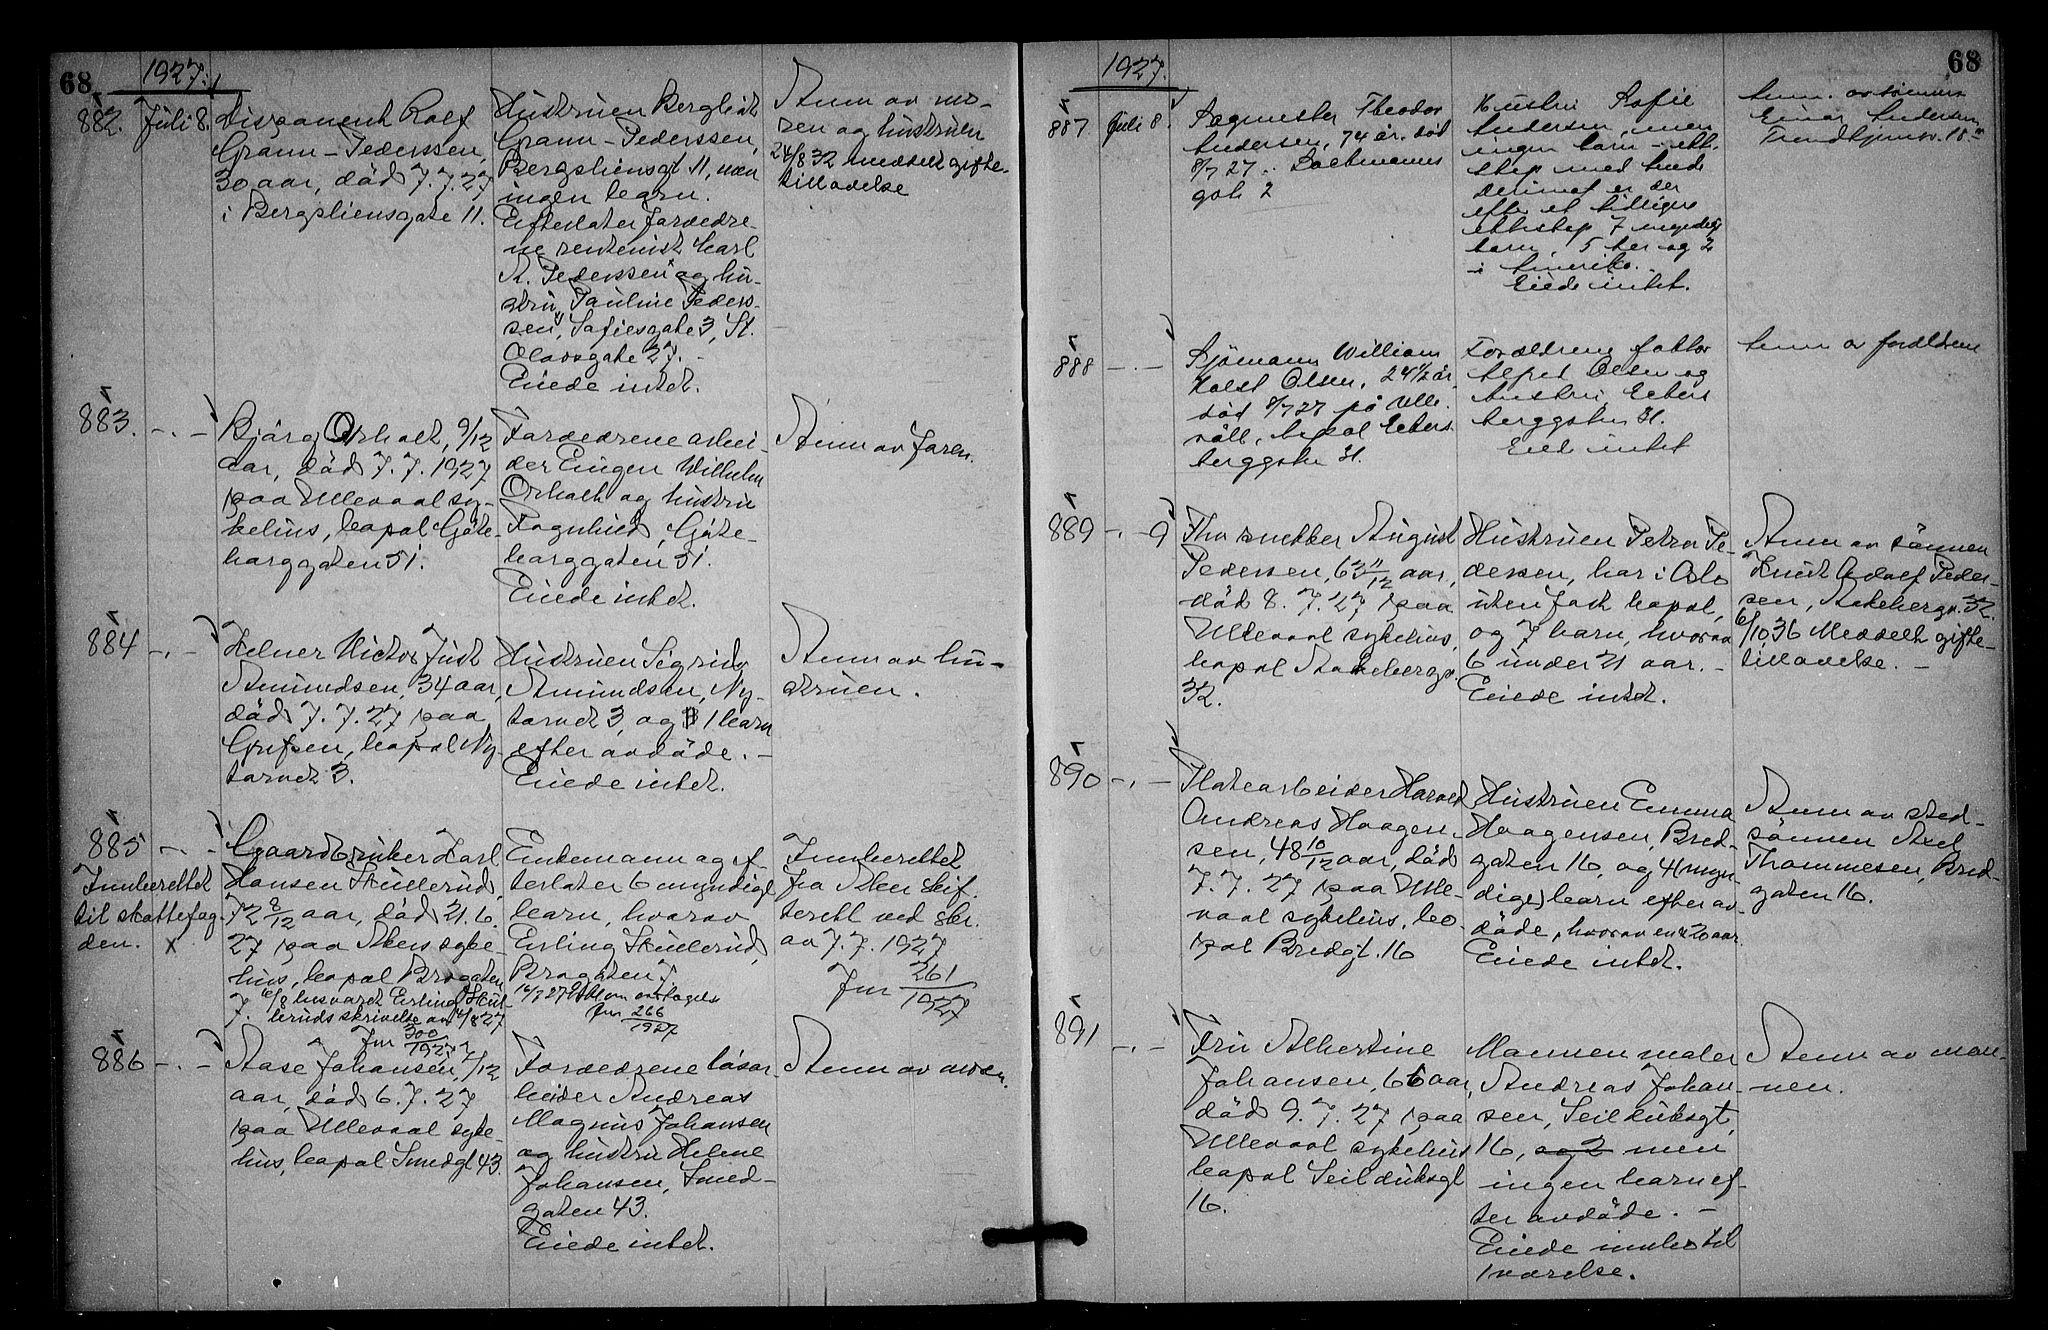 68
1927.
882. Juli 8.
Disponent Rolf
Grann-Pederssen,
30 aar, död 7.7.27
i Bergsliensgate 11.
Hustruen Bergliot
Grann-Pederssen,
Bergsliensgt 11, men
ingen barn.
Efterlater foreldre-
ne rentenist Carl
A. Pederssen og hu-
stru Pauline Peders-
sen, Sofiesgate 3, St.
Olavsgate 27. -
Eiede intet.
Anm av mo-
ren og hustruen
24/8 32 meddelt gifte-
tilladelse
883. -.-
Bjärg Orholt, 9/12
aar, död 7.7.1927
paa Ullevaal sy-
kehus, bopal Göte-
borggaten 51.
Foreldrene arbei-
der Eugen Wilhelm
Orholt og hustru
Ragnhild, Göte-
borggaten 51.
Eiede intet.
Anm av faren.
884 -.-
Helner Victor Just
Amundsen, 34 aar,
död 7.7.27 paa
Grefsen, bopal Ny-
torvet 3.
Hustruen Sigrid
Amundsen, Ny-
torvet 3, og 1 barn
efter avdöde. -
Eiede intet.
Anm av hu-
struen.
885 -.-
Innberettet
til skattefog-
den. x
Gaardbruker Karl
Hansen Hullerud,
72 8/12 aar, död 21.6.
27 paa Akers syke-
hus, bopal Brogaten
7. 6/8 besvaret Erling Hul-
leruds skrivelse av 4/8 27
Jnr 300/1927
Enkemann og ef-
terlater 6 myndige
barn, hvorav
Erling Hullerud,
Brogaten 7.
Jnr 266/1927
Innberettet
fra Aker skif-
terett ved skr.
av 7.7.1927
Jnr 261/1927
886 -.-
Aase Johansen, 4/12
aar, död 6.7.27
paa Ullevaal syke-
hus, bopal Smedgt 43.
Foreldrene lösar-
beider Andreas
Magnus Johansen
og hustru Helene
Johansen, Smed-
gaten 43.
Eiede intet.
Anm av moren.
68
1927.
887 Juli 8.
Sagmester Theodor
Andersen, 74 år. död
8/7 27.
gate 2
Hustru Sofie
Andersen, men
ingen barn i ekte-
skap med hende
derimot er der
efter et tidligere
ekteskap 7 myndige
barn, 5 her og 2
i Amerika.
Eiede intet.
Anm. av sönnen
Einar Andersen
Trondhjemsv. 18
888 -.-
Sjömann William
Holst Olsen, 24 1/2 år,
död 8/7 27 på Ulle-
våll, bopal Eckers-
berggaten 31.
Foreldrene faktor
Alfred Olsen og
hustru, Eckers-
berggaten 31.
Eied intet
Anm av foreldrene
889 -.- 9
Fhv snekker August
Pedersen, 63 11/12 aar,
död 8.7.27 paa
Ullevaal sykehus,
bopal Aakebergv.
32.
Hustruen Petra Pe-
dersen, her i Oslo
uten fast bopal,
og 7 barn, hvorav
6 under 21 aar. -
Eiede intet.
Anm av sönnen
Knut Adolf Peder-
sen, Aakebergv. 32.
6/10 36 Meddelt gifte-
tilladelse. -
890 -.-
Platearbeider Harald
Andreas Haagen-
sen, 48 10/12 aar, död
7.7.27 paa Ulle-
vaal sykehus, bo-
pal Bredgt. 16
Hustruen Emma
Haagensen, Bred-
gaten 16, og 4 (myn-
dige) barn efter av-
döde, hvorav en 20 aar
Eiede intet.
Anm av sted-
sönnen Axel
Thommesen, Bred-
gaten 16.
891 -.-
Fru Albertine
Johansen, 66 aar,
död 9.7.27 paa
Ullevaal sykehus
bopal Seilduksgt
16.
Mannen maler
Andreas Johan-
sen, Seilduksgt,
16, og 2 men
ingen barn ef-
ter avdöde. -
Eiede innbo til
1 værelse.
Anm av man-
nen.